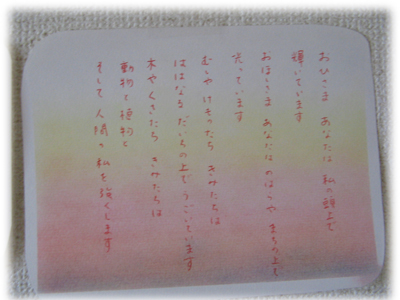 おひさま あなたは 私の頭上で
輝いています
おほしさま あなたは のはらや まちの上で
光っています
むしや けものたち きみたちは
ははなる だいちの上で うごいています
木や くさたち きみたちは
動物と植物と
そして 人間の 私を 強くします